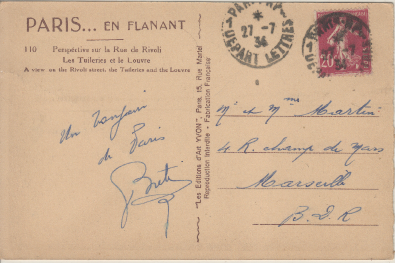 PARIS... EN FLANANT
110 Perspective sur la Rue de Rivoli
Les Tuileries et le Louvre
A view on the Rivoli street, the Tuileries and the Louvre
Un bonjour
de Paris
"Les Editions d'Art YVON", Paris, 15, Rue Martel
Reproduction Interdite - Fabrication Française
27-7
34
DEPART LETTRES
20
Mr et Mme Martin
4 R. champ de Mars
Marseille
B.D.R